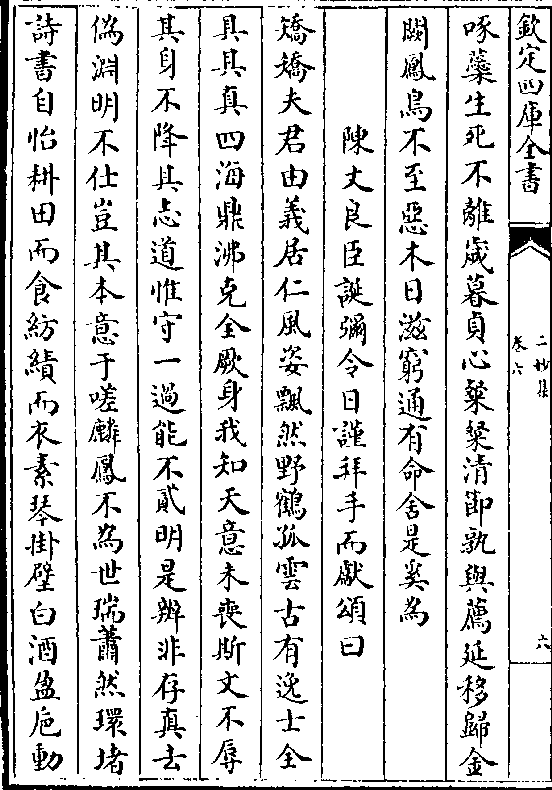 欽定四庫全書
二妙集
卷六
六
啄藥生死不離歲暮貞心粲粲清節孰與薦延移歸金
闕鳳鳥不至惡木日滋窮通有命舍是奚為
陳丈良臣誕彌令日謹拜手而獻頌曰
矯矯夫君由義居仁風姿飄然野鶴孤雲古有逸士全
具其真四海鼎沸克全厥身我知天意未喪斯文不辱
其身不降其志道惟守一過能不貳明是辨非存真去
偽淵明不仕豈其本意于嗟麟鳳不為世瑞蕭然環堵
詩書自怡耕田而食紡績而衣素琴掛壁白酒盈巵動